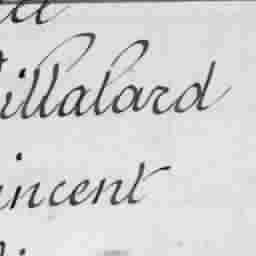 illalard
incent